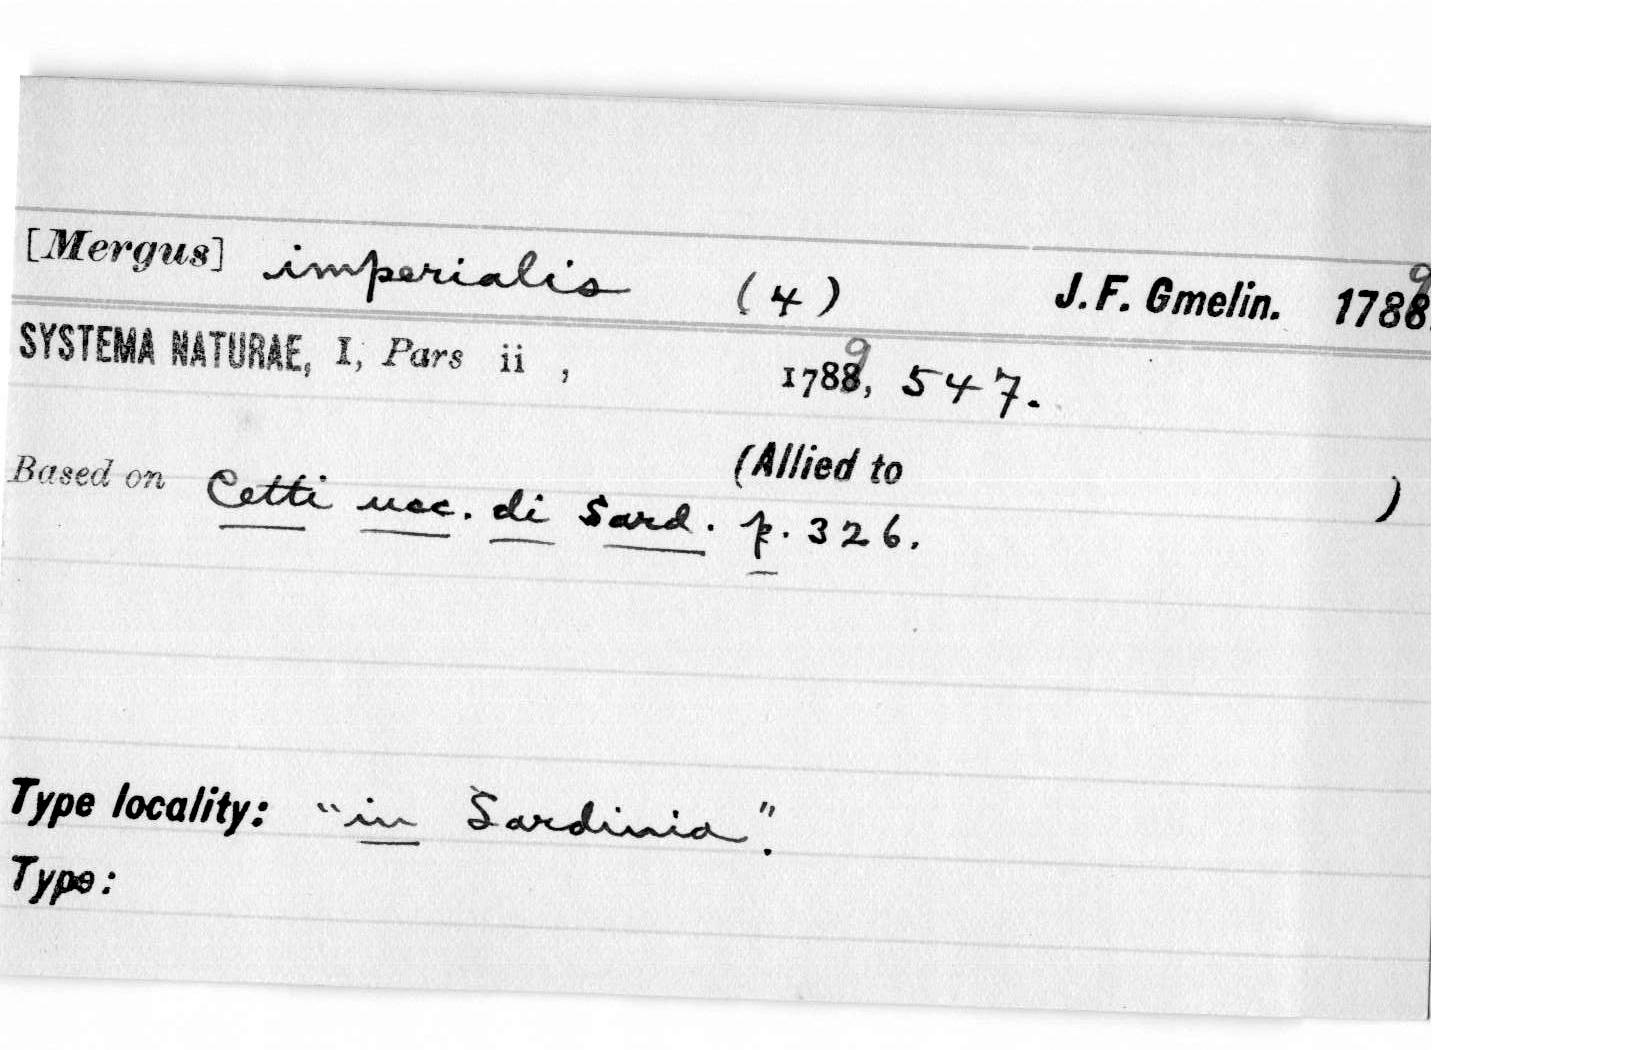 [Mergus] imperialis (4) J. F. Gmelin. 1789
SYSTEMA NATURAE, I, Pars ii , 1789, 547.
(Allied to )
Based on Cetti ucc. di Sard. p. 326.
Type locality: "in Sardinia".
Type: